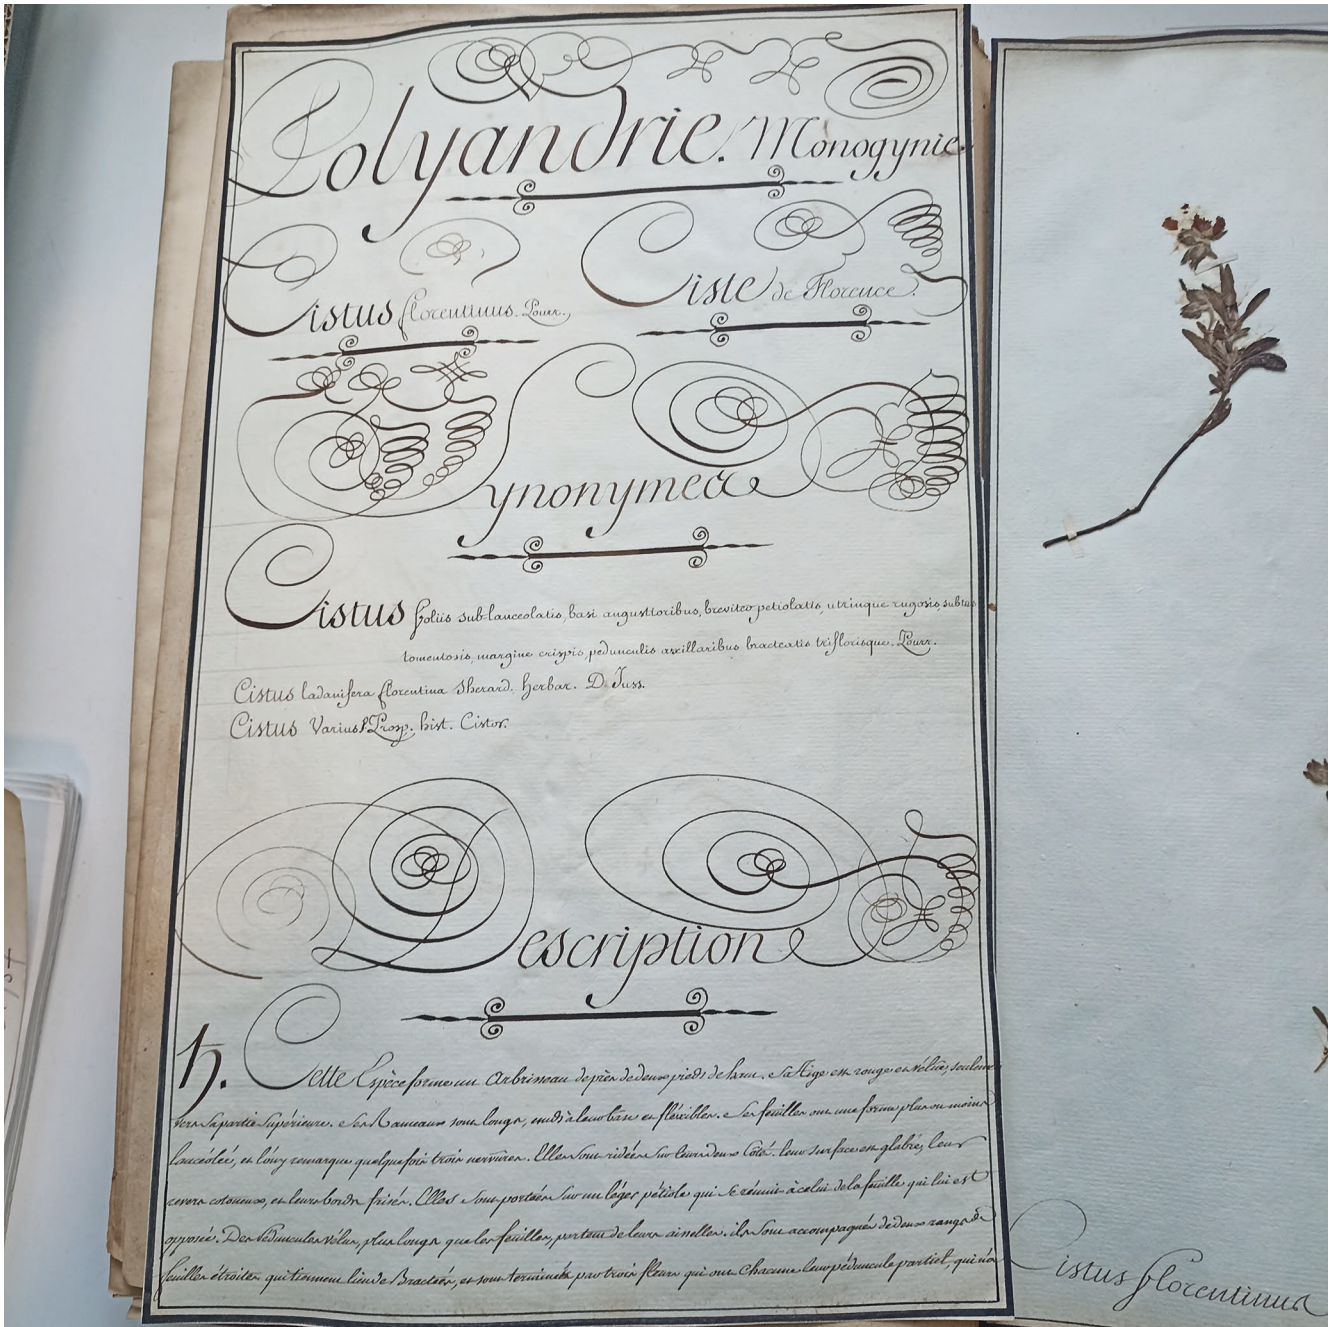 Polyandrie. Monogynie.
Cistus florentinus. Pourr.
Ciste de Florence.
Synonymea
Cistus foliis sub-lanceolatis, basi angustioribus, breviter petiolatis, utrinque rugosis, subtus
tomentosis, margine crispis, pedunculis axillaribus bracteatis triflorisque. Pourr.
Cistus ladanifera florentina Sherard. herbar. D. Juss.
Cistus Varius Prosp. hist. Cistor.
Description
♄. Cette Espèce forme un Arbrisseau de près de deux pieds de haut. Sa Tige est rouge et vélue, seulement
vers sa partie Supérieure. Ses Rameaux sont longs, nuds à leur base et fléxibles. Ses feuilles ont une forme plus ou moins
lancéolée, et l'on y remarque quelquefois trois nervures. Elles sont ridées sur leurs deux Côtés. leur surface est glabre, leur
revers cotoneux, et leurs bords frisés. Elles sont portées sur un léger pétiole qui se réunit à celui de la feuille qui lui est
opposée. Des Péduncules vélus, plus longs que les feuilles, partent de leurs aisselles. ils sont accompagnés de deux rangs de
feuilles étroites qui tiennent lieu de Bractées, et sont terminés par trois fleurs qui ont Chacune leur péduncule partiel, qui n'a
Cistus florentinus